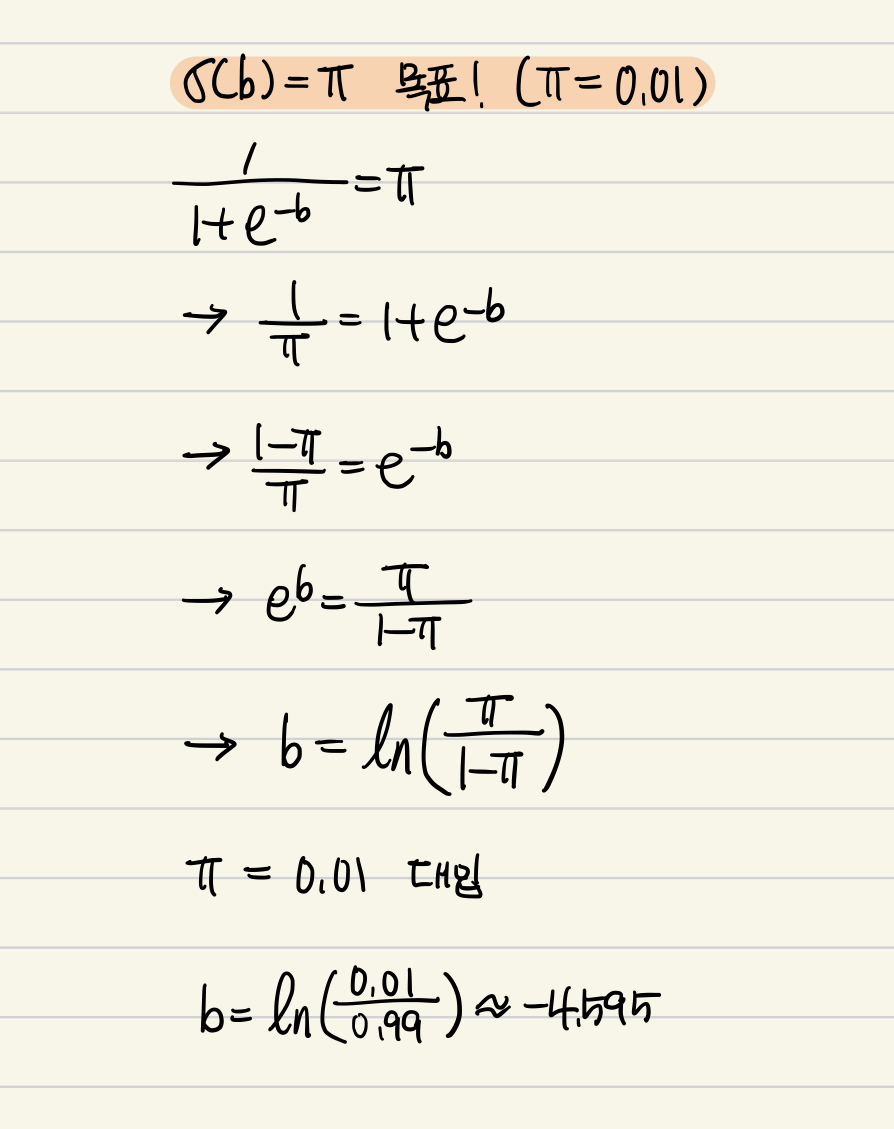 σ(b) = π 목표! (π = 0.01)
1/(1+e^-b) = π
→ 1/π = 1+e^-b
→ (1-π)/π = e^-b
→ e^b = π/(1-π)
→ b = ln(π/(1-π))
π = 0.01 대입
b = ln(0.01/0.99) ≈ -4.595